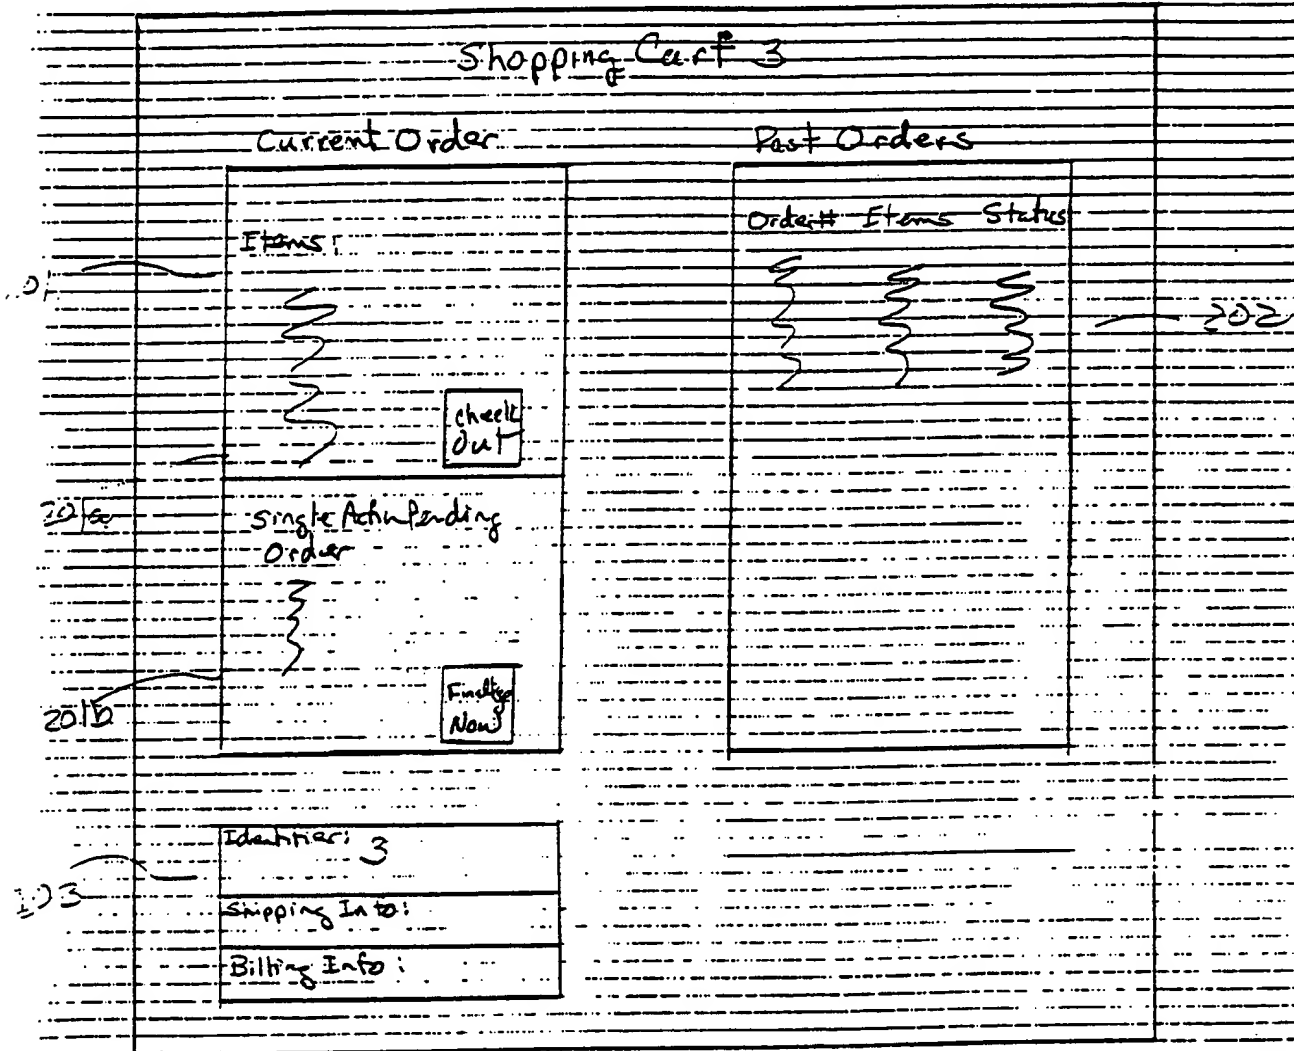 Shopping Cart 3
Current Order
Past Orders
Items:
Order# Items Status
202
Check
Out
Single Action Pending
Order
201b
Finalize
Now
Identifier: 3
103
Shipping Info:
Billing Info: